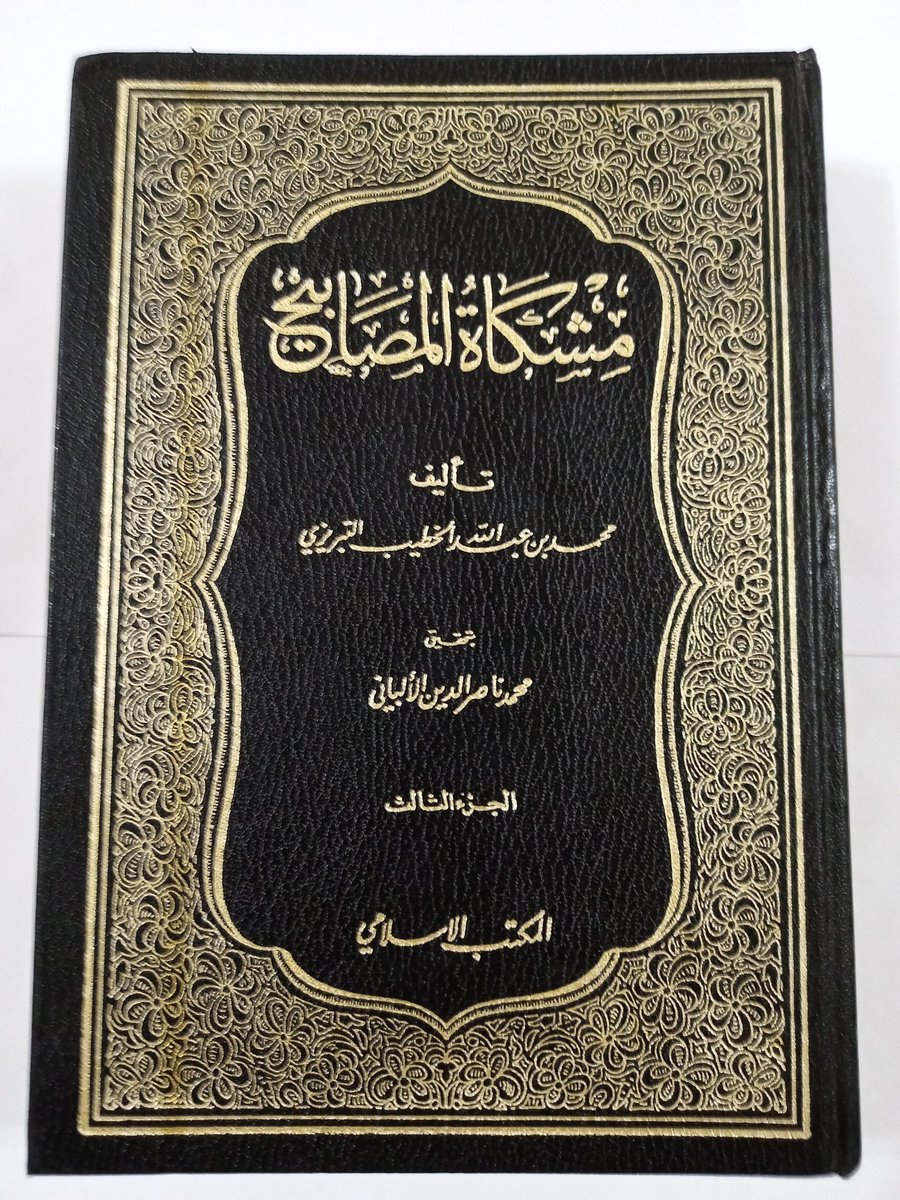 مِشْكَاةُ المَصَابِيْحِ
تأليف
محمد بن عبد الله الخطيب التبريزي
بتحقيق
محمد ناصر الدين الألباني
الجزء الثالث
المكتب الاسلامي